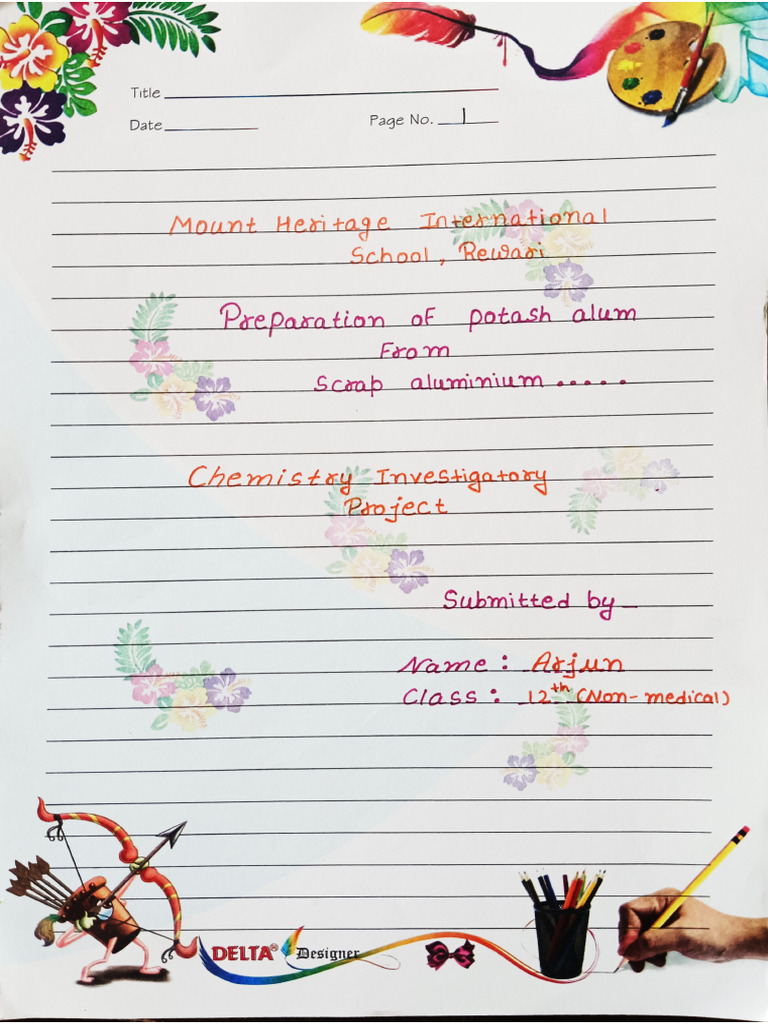 Title
Date
Page No. 1
Mount Heritage International
School, Rewari
Preparation of potash alum
From
Scrap aluminium.....
Chemistry Investigatory
Project
Submitted by_
Name: Arjun
Class: 12th (Non-medical)
DELTA® Designer